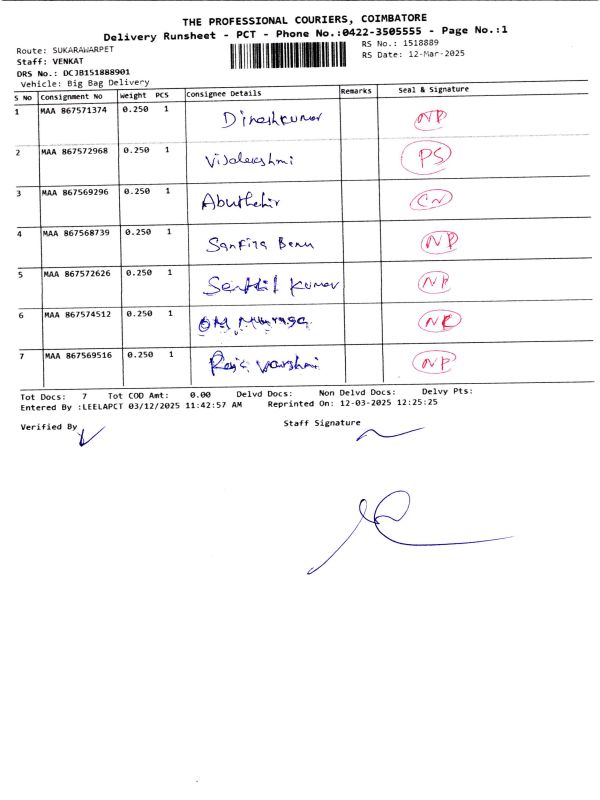 THE PROFESSIONAL COURIERS, COIMBATORE
Delivery Runsheet - PCT - Phone No.:0422-3505555 - Page No.:1
Route: SUKARAWARPET
RS No.: 1518889
Staff: VENKAT
RS Date: 12-Mar-2025
DRS No.: DCJB151888901
Vehicle: Big Bag Delivery
S No Consignment No Weight PCS Consignee Details Remarks Seal & Signature
1 MAA 867571374 0.250 1 Dineshkumar NP
2 MAA 867572968 0.250 1 Vijalakshmi PS
3 MAA 867569296 0.250 1 Abuthehir CN
4 MAA 867568739 0.250 1 NP
5 MAA 867572626 0.250 1 Senthil Kumar NP
6 MAA 867574512 0.250 1 OM NP
7 MAA 867569516 0.250 1 NP
Tot Docs: 7 Tot COD Amt: 0.00 Delvd Docs: Non Delvd Docs: Delvy Pts:
Entered By :LEELAPCT 03/12/2025 11:42:57 AM Reprinted On: 12-03-2025 12:25:25
Verified By
Staff Signature